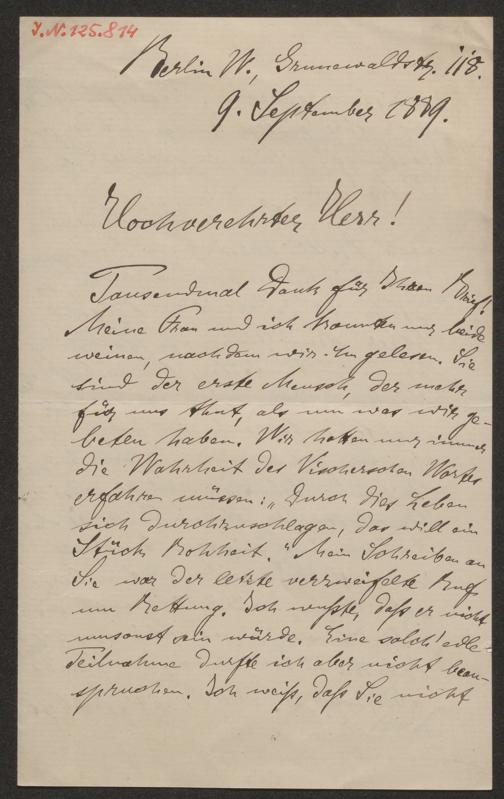 I.N. 125.814
Berlin W., Grunewaldstr. 118.
9. September 1889.
Hochverehrter Herr!
Tausendmal Dank für Ihren Brief!
Meine Frau und ich konnten nur beide
weinen, nachdem wir ihn gelesen. Sie
sind der erste Mensch, der mehr
für uns thut, als um was wir ge-
beten haben. Wir hatten nur immer
die Wahrheit des Vischerschen Wortes
erfahren müssen: „Durch dies Leben
sich durchzuschlagen, das will ein
Stück Rohheit." Mein Schreiben an
Sie war der letzte verzweifelte Ruf
um Rettung. Ich wußte, daß er nicht
umsonst sein würde. Eine solch' edle
Teilnahme durfte ich aber nicht bean-
spruchen. Ich weiß, daß Sie nicht